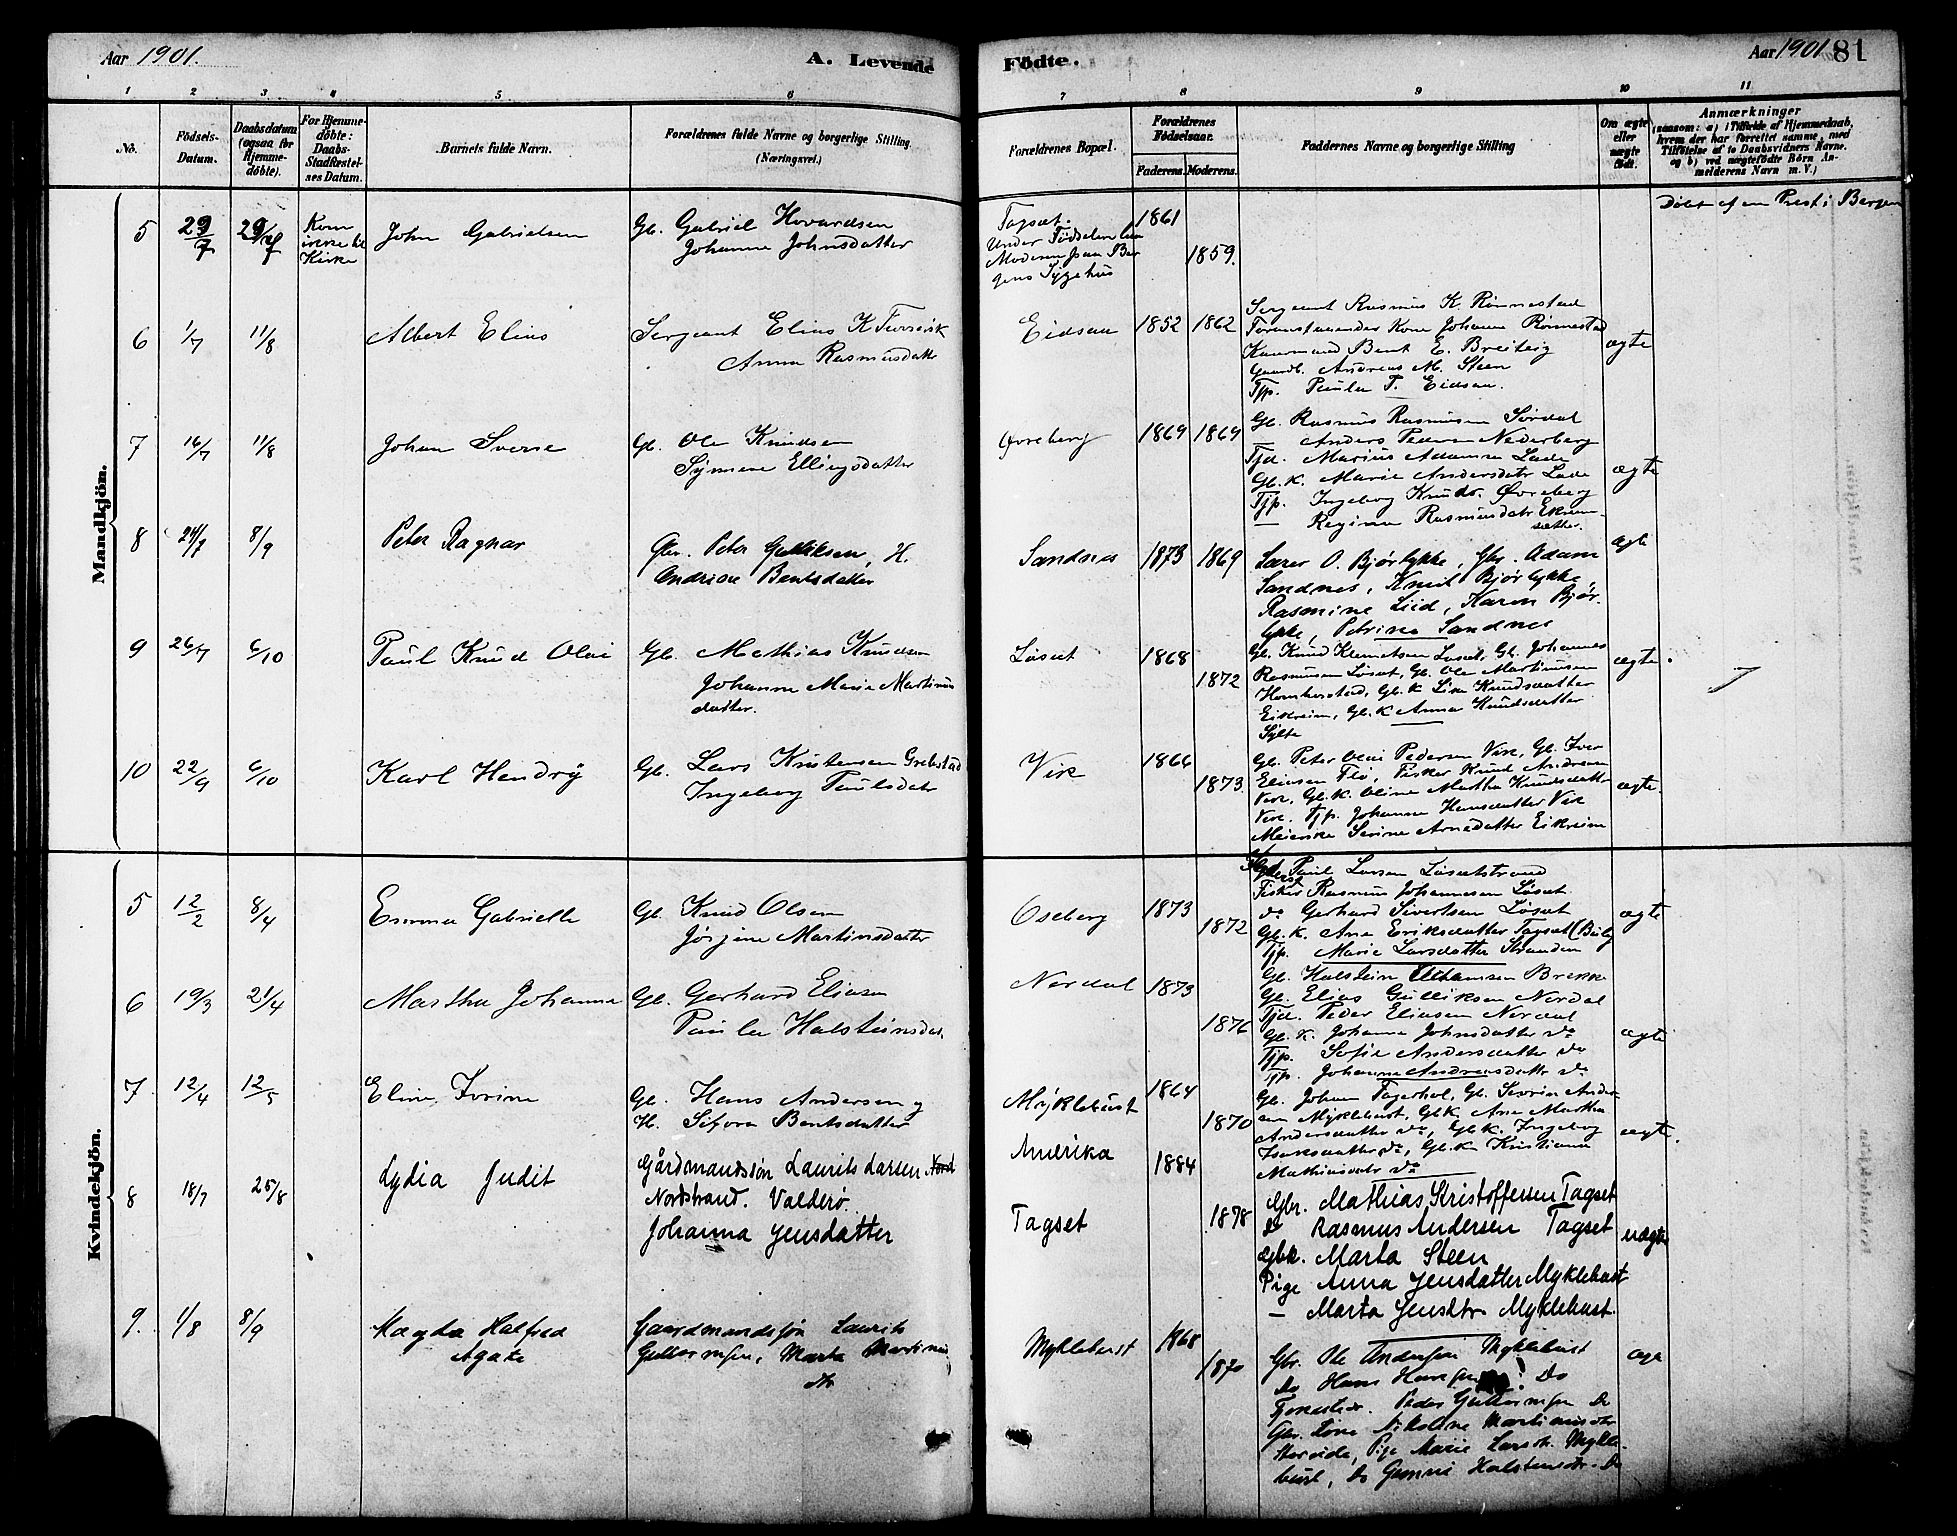 Aar 1901.
A. Levende
Födte.
Aar 1901 81
1 2 3 4 5 6
7 8 9 10 11
No.
Födsels-
Datum.
Daabsdatum
(ogsaa for
Hjemme-
döbte).
For Hjemme-
döbte:
Daabs-
Stadfæstel-
ses Datum.
Barnets fulde Navn.
Forældrenes fulde Navne og borgerlige Stilling
(Næringsvei.)
Forældrenes Bopæl.
Forældrenes
Födselsaar.
Faderens.
Moderens.
Faddernes Navne og borgerlige Stilling
Om ægte
eller
uægte
födt.
Anmærkninger
(saasom: a) i Tilfælde af Hjemmedaab,
hvem der har forrettet samme, med
Tilföielse af to Daabsvidners Navne.
og b) ved uægtefödte Börn An-
melderens Navn m. V.)
Mandkjön.
5
29/7
Kom
ikke til
Kirke
John Gabrielsen
Gb. Gabriel Hovardsen
Johanne Johnsdatter
Tagset.
Under Fødselen
Moderen paa Ber
gens Sygehus
1861
1859.
Døbt af en Prest i Bergen
6
1/7
11/8
Albert Elias
Sergeant Elias K
Anna Rasmusdatter
Eidsaa
1852
1862
Sergeant Rasmus K. Rønnestad
Kone Johanne Rønnestad
Kaarmand Bent E. Breiteig
Gaardb. Andreas M. Steen
Tjp. Paula T. Eidsaa.
ægte
7
16/7
11/8
Johan Sverre
Gb. Ole Knudsen
Synneve Ellingsdatter
Øvreberg
1869
1869
Gb. Rasmus Rasmussen Sørdal
— Anders Pedersen Nedreberg
Tjd. Marius Adamsen Lade
Gb. K. Marie Andersdatr Lade
Tjp. Ingeborg Knudsdr. Øvreberg
— Regine Rasmusdatr Ekrem-
sætter.
ægte
8
24/7
8/9
Peter Ragnar
Gbr. Peter Gulliksen, H.
Andrine Bentsdatter
Sandnes
1873
1869
Lærer O. Bjørlykke, Gbr. Adam
Sandnes, Knut Bjørlykke,
Rasmine Liid, Karen Bjør-
lykke, Petrine Sandnes
ægte
9
26/7
6/10
Paul Knud Olai
Gb. Mathias Knudsen
Johanne Marie Martinus
datter.
Løset
1868
1872
Gb. Knud Klemetsen Løset, Gb. Johannes
Rasmussen Løset, Gb. Ole Martinussen
Hornhovstad, Gb. K Lise Knudsdatter
Eikreim, Gb. K Anna Knudsdatter
Sylte
ægte.
10
22/9
6/10
Karl Hendry
Gb. Lars Kristensen Grebstad
Ingeborg Paulsdatr
Vik
1866
1873.
Gb. Peter Olai Pedersen Vik, Gb. Iver
Eliasen Flø, Fisker Knud Andreasen
Vik, Gb. K. Oline Martha Knudsdatter
Vik. Tjp. Johanne Hansdatter Vik
Meierske Serine Arnedatter Eikreim
ægte.
Kvindekjön.
5
12/2
8/4
Emma Gabrielle
Gb. Knud Olsen
Jørgine Martinsdatter
Oseberg
1873
1872
Paul Larsen Løsetstrand
Fisker Rasmus Johannesen Løset
do Gerhard Sivertsen Løset
Gb. K. Ane Eriksdatter Tagset
Tjp. Marie Larsdatter Stranden
ægte
6
19/3
21/4
Martha Johanne
Gb. Gerhard Eliasen
Paula Halsteinsdtr.
Nordal
1873
1876
Gb. Halstein Brekke
Gb. Elias Gulliksen Nordal
Tjd. Peder Eliasen Nordal
Gb. K. Johanne Johnsdatter do
Tjp. Sofie Andersdatter do
Tjp. Johanne Andreasdattr do
ægte
7
12/4
12/5
Eline Ivrine
Gb. Hans Andersen og
H. Sifora Bentsdatter
Myklebust
1864
1870
Gb. Johan Fagerhol, Gb. Severin Ander-
sen Myklebust, Gbk. Ane Martha
Andersdatter do, Gbk. Ingeborg
Isaksdatter do, Gb. K Kristiane
Mathiasdatr do
ægte.
8
18/7
25/8
Lydia Judit
Gårdmandssön Laurits Larsen Nord
Nordstrand. Valderø.
Johanna Jensdatter
Amerika
Tagset
1884
1878
Gbr. Mathias Kristoffersen Tagset
do Rasmus Andersen Tagset
Gbk. Marta Steen
Pige Anna Jensdatter Myklebust
— Marta Jensdtr Myklebust.
uægte
9.
1/8
8/9
Magda Halfred
Agate
Gaardmandssøn Laurits
Guttormsen, Marta Martinus
dtr
Myklebust
1868
1870
Gbr. Ole Andersen Myklebust
Do Hans Hansen Do
Peder Guttormsen Do
Gbr. Kone Nikoline Martinusdtr
Pige Marie Larsdtr. Mykle-
bust, Do Gunni Halstensdtr. Do